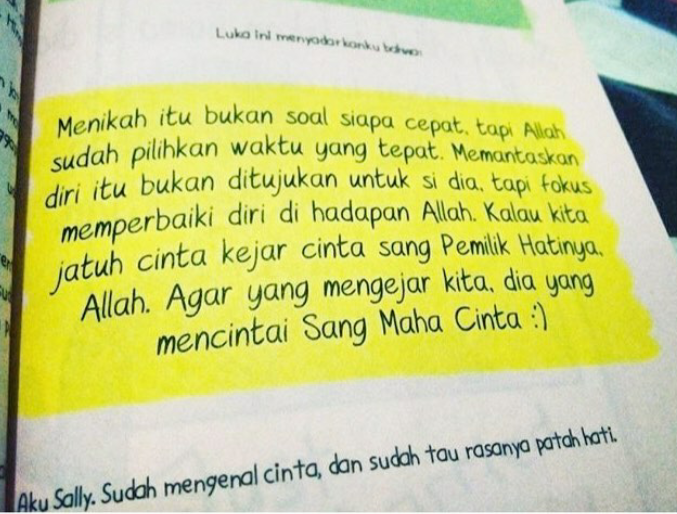 Luka ini menyadarkanku bahwa:
Menikah itu bukan soal siapa cepat, tapi Allah
sudah pilihkan waktu yang tepat. Memantaskan
diri itu bukan ditujukan untuk si dia, tapi fokus
memperbaiki diri di hadapan Allah. Kalau kita
jatuh cinta kejar cinta sang Pemilik Hatinya,
Allah. Agar yang mengejar kita, dia yang
mencintai Sang Maha Cinta :)
Aku Sally. Sudah mengenal cinta, dan sudah tau rasanya patah hati.